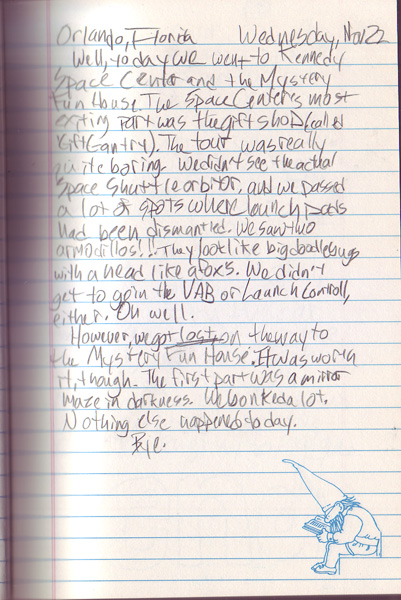 Orlando, Florida Wednesday, Nov 22
Well, yoday we went to Kennedy
Space Center and the Mystery
Fun House. The Space Center's most
exiting part was the gift shop (called
Gift Gantry). The tour was really
quite boring. We didn't see the actual
Space Shuttle orbitor, and we passed
a lot of spots where launch pads
had been dismantled. We saw two
armodillos!!! They look like big doodlebugs
with a head like a fox's. We didn't
get to go in the VAB or Launch Controll,
either. Oh well.
However, we got lost on the way to
the Mystery Fun House. It was worth
it, though. The first part was a mirror
maze in darkness. We bonked a lot.
Nothing else happened today.
Bye.